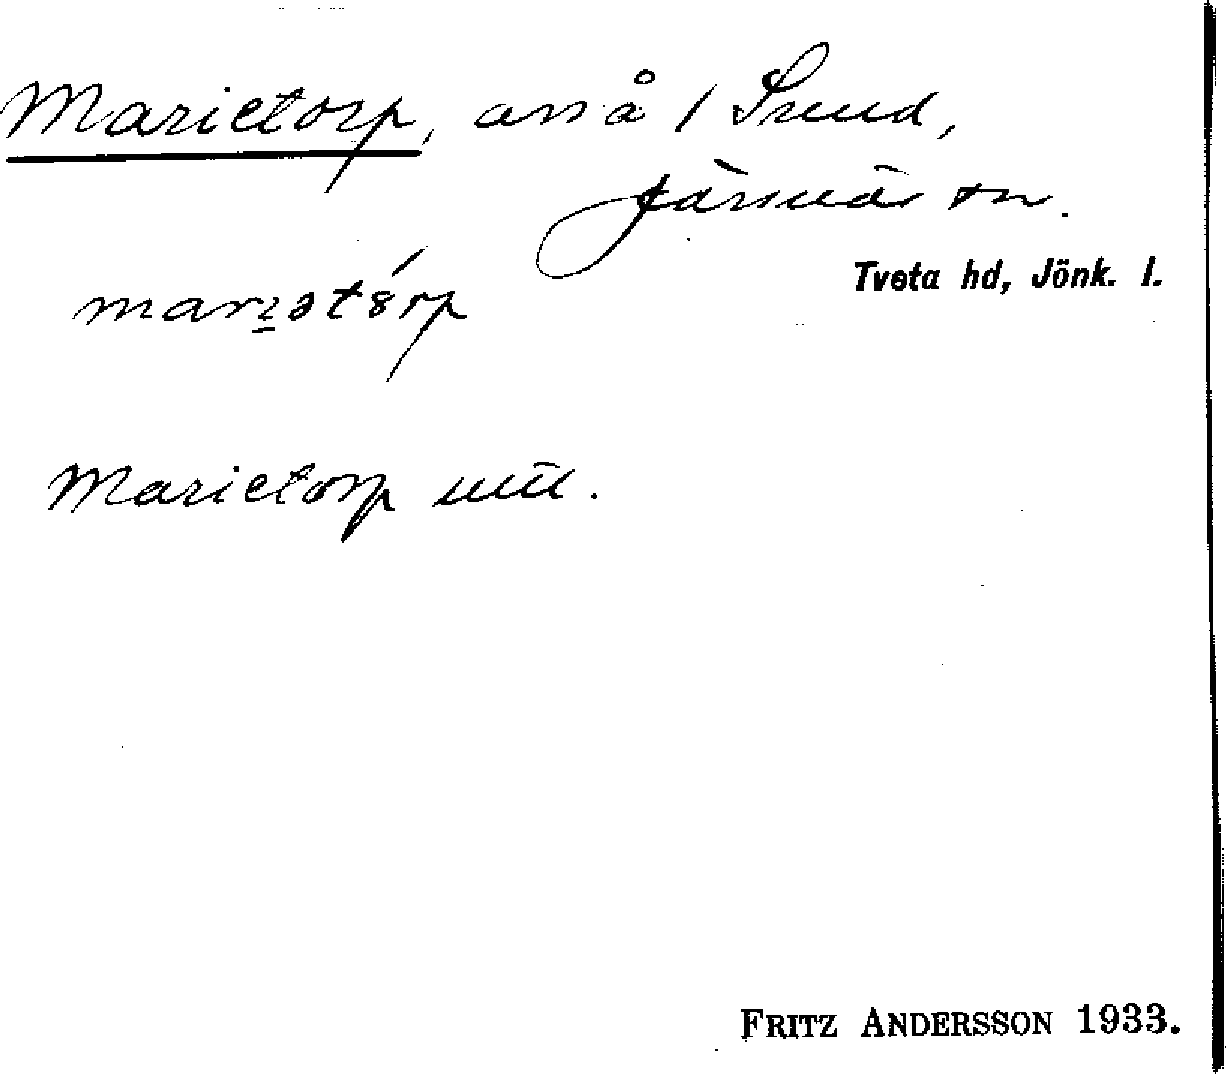 Marietorp, avs å 1 Sund,
Järsnäs sn.
Tveta hd, Jönk. l.
Marietorp
FRITZ ANDERSSON 1933.